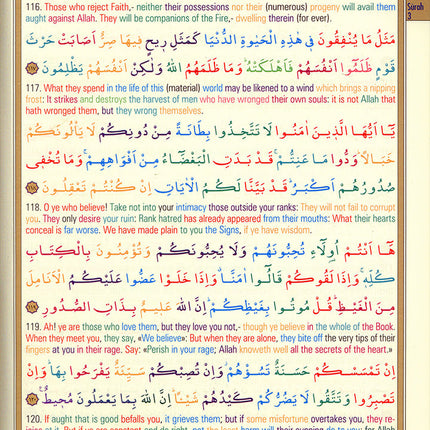 Sūrah
3
116. Those who reject Faith,- neither their possessions nor their (numerous) progeny will avail them
aught against Allah. They will be companions of the Fire,- dwelling therein (for ever).
مَثَلُ مَا يُنْفِقُونَ فِي هٰذِهِ الْحَيٰوةِ الدُّنْيَا كَمَثَلِ رِيحٍ فِيهَا صِرٌّ أَصَابَتْ حَرْثَ
قَوْمٍ ظَلَمُوا أَنْفُسَهُمْ فَأَهْلَكَتْهُ وَمَا ظَلَمَهُمُ اللّٰهُ وَلٰكِنْ أَنْفُسَهُمْ يَظْلِمُونَ ﴿١١٧﴾
117. What they spend in the life of this (material) world may be likened to a wind which brings a nipping
frost: It strikes and destroys the harvest of men who have wronged their own souls: it is not Allah that
hath wronged them, but they wrong themselves.
يَا أَيُّهَا الَّذِينَ آمَنُوا لَا تَتَّخِذُوا بِطَانَةً مِنْ دُونِكُمْ لَا يَأْلُونَكُمْ
خَبَالًا وَدُّوا مَا عَنِتُّمْ قَدْ بَدَتِ الْبَغْضَاءُ مِنْ أَفْوَاهِهِمْ وَمَا تُخْفِي
صُدُورُهُمْ أَكْبَرُ قَدْ بَيَّنَّا لَكُمُ الْآيَاتِ إِنْ كُنْتُمْ تَعْقِلُونَ ﴿١١٨﴾
118. O ye who believe! Take not into your intimacy those outside your ranks: They will not fail to corrupt
you. They only desire your ruin: Rank hatred has already appeared from their mouths: What their hearts
conceal is far worse. We have made plain to you the Signs, if ye have wisdom.
هَا أَنْتُمْ أُولَاءِ تُحِبُّونَهُمْ وَلَا يُحِبُّونَكُمْ وَتُؤْمِنُونَ بِالْكِتَابِ
كُلِّهِ وَإِذَا لَقُوكُمْ قَالُوا آمَنَّا وَإِذَا خَلَوْا عَضُّوا عَلَيْكُمُ الْأَنَامِلَ
مِنَ الْغَيْظِ قُلْ مُوتُوا بِغَيْظِكُمْ إِنَّ اللّٰهَ عَلِيمٌ بِذَاتِ الصُّدُورِ ﴿١١٩﴾
119. Ah! ye are those who love them, but they love you not,- though ye believe in the whole of the Book.
When they meet you, they say, «We believe»: But when they are alone, they bite off the very tips of their
fingers at you in their rage. Say: «Perish in your rage; Allah knoweth well all the secrets of the heart.»
إِنْ تَمْسَسْكُمْ حَسَنَةٌ تَسُؤْهُمْ وَإِنْ تُصِبْكُمْ سَيِّئَةٌ يَفْرَحُوا بِهَا وَإِنْ
تَصْبِرُوا وَتَتَّقُوا لَا يَضُرُّكُمْ كَيْدُهُمْ شَيْئًا إِنَّ اللّٰهَ بِمَا يَعْمَلُونَ مُحِيطٌ ﴿١٢٠﴾
120. If aught that is good befalls you, it grieves them; but if some misfortune overtakes you, they re-